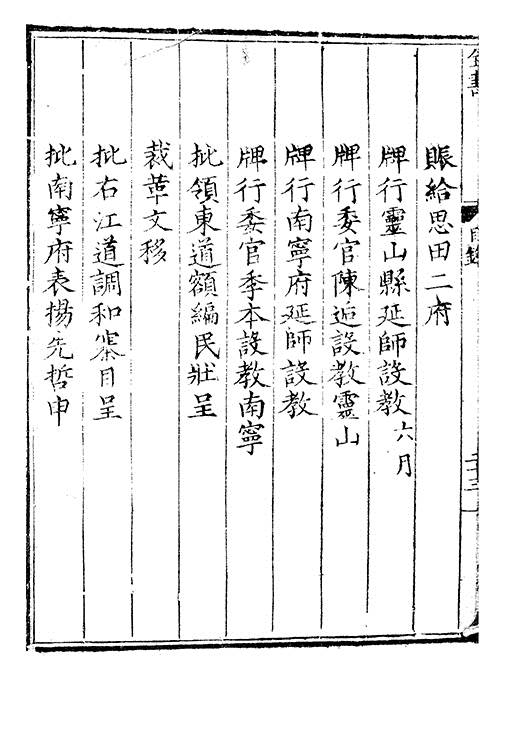 賑給思田二府
牌行靈山縣延師設教六月
牌行委官陳逅設教靈山
牌行南寧府延師設教
牌行委官季本設教南寧
批嶺東道額編民壯呈
裁革文移
批右江道調和寨目呈
批南寧府表揚先哲申